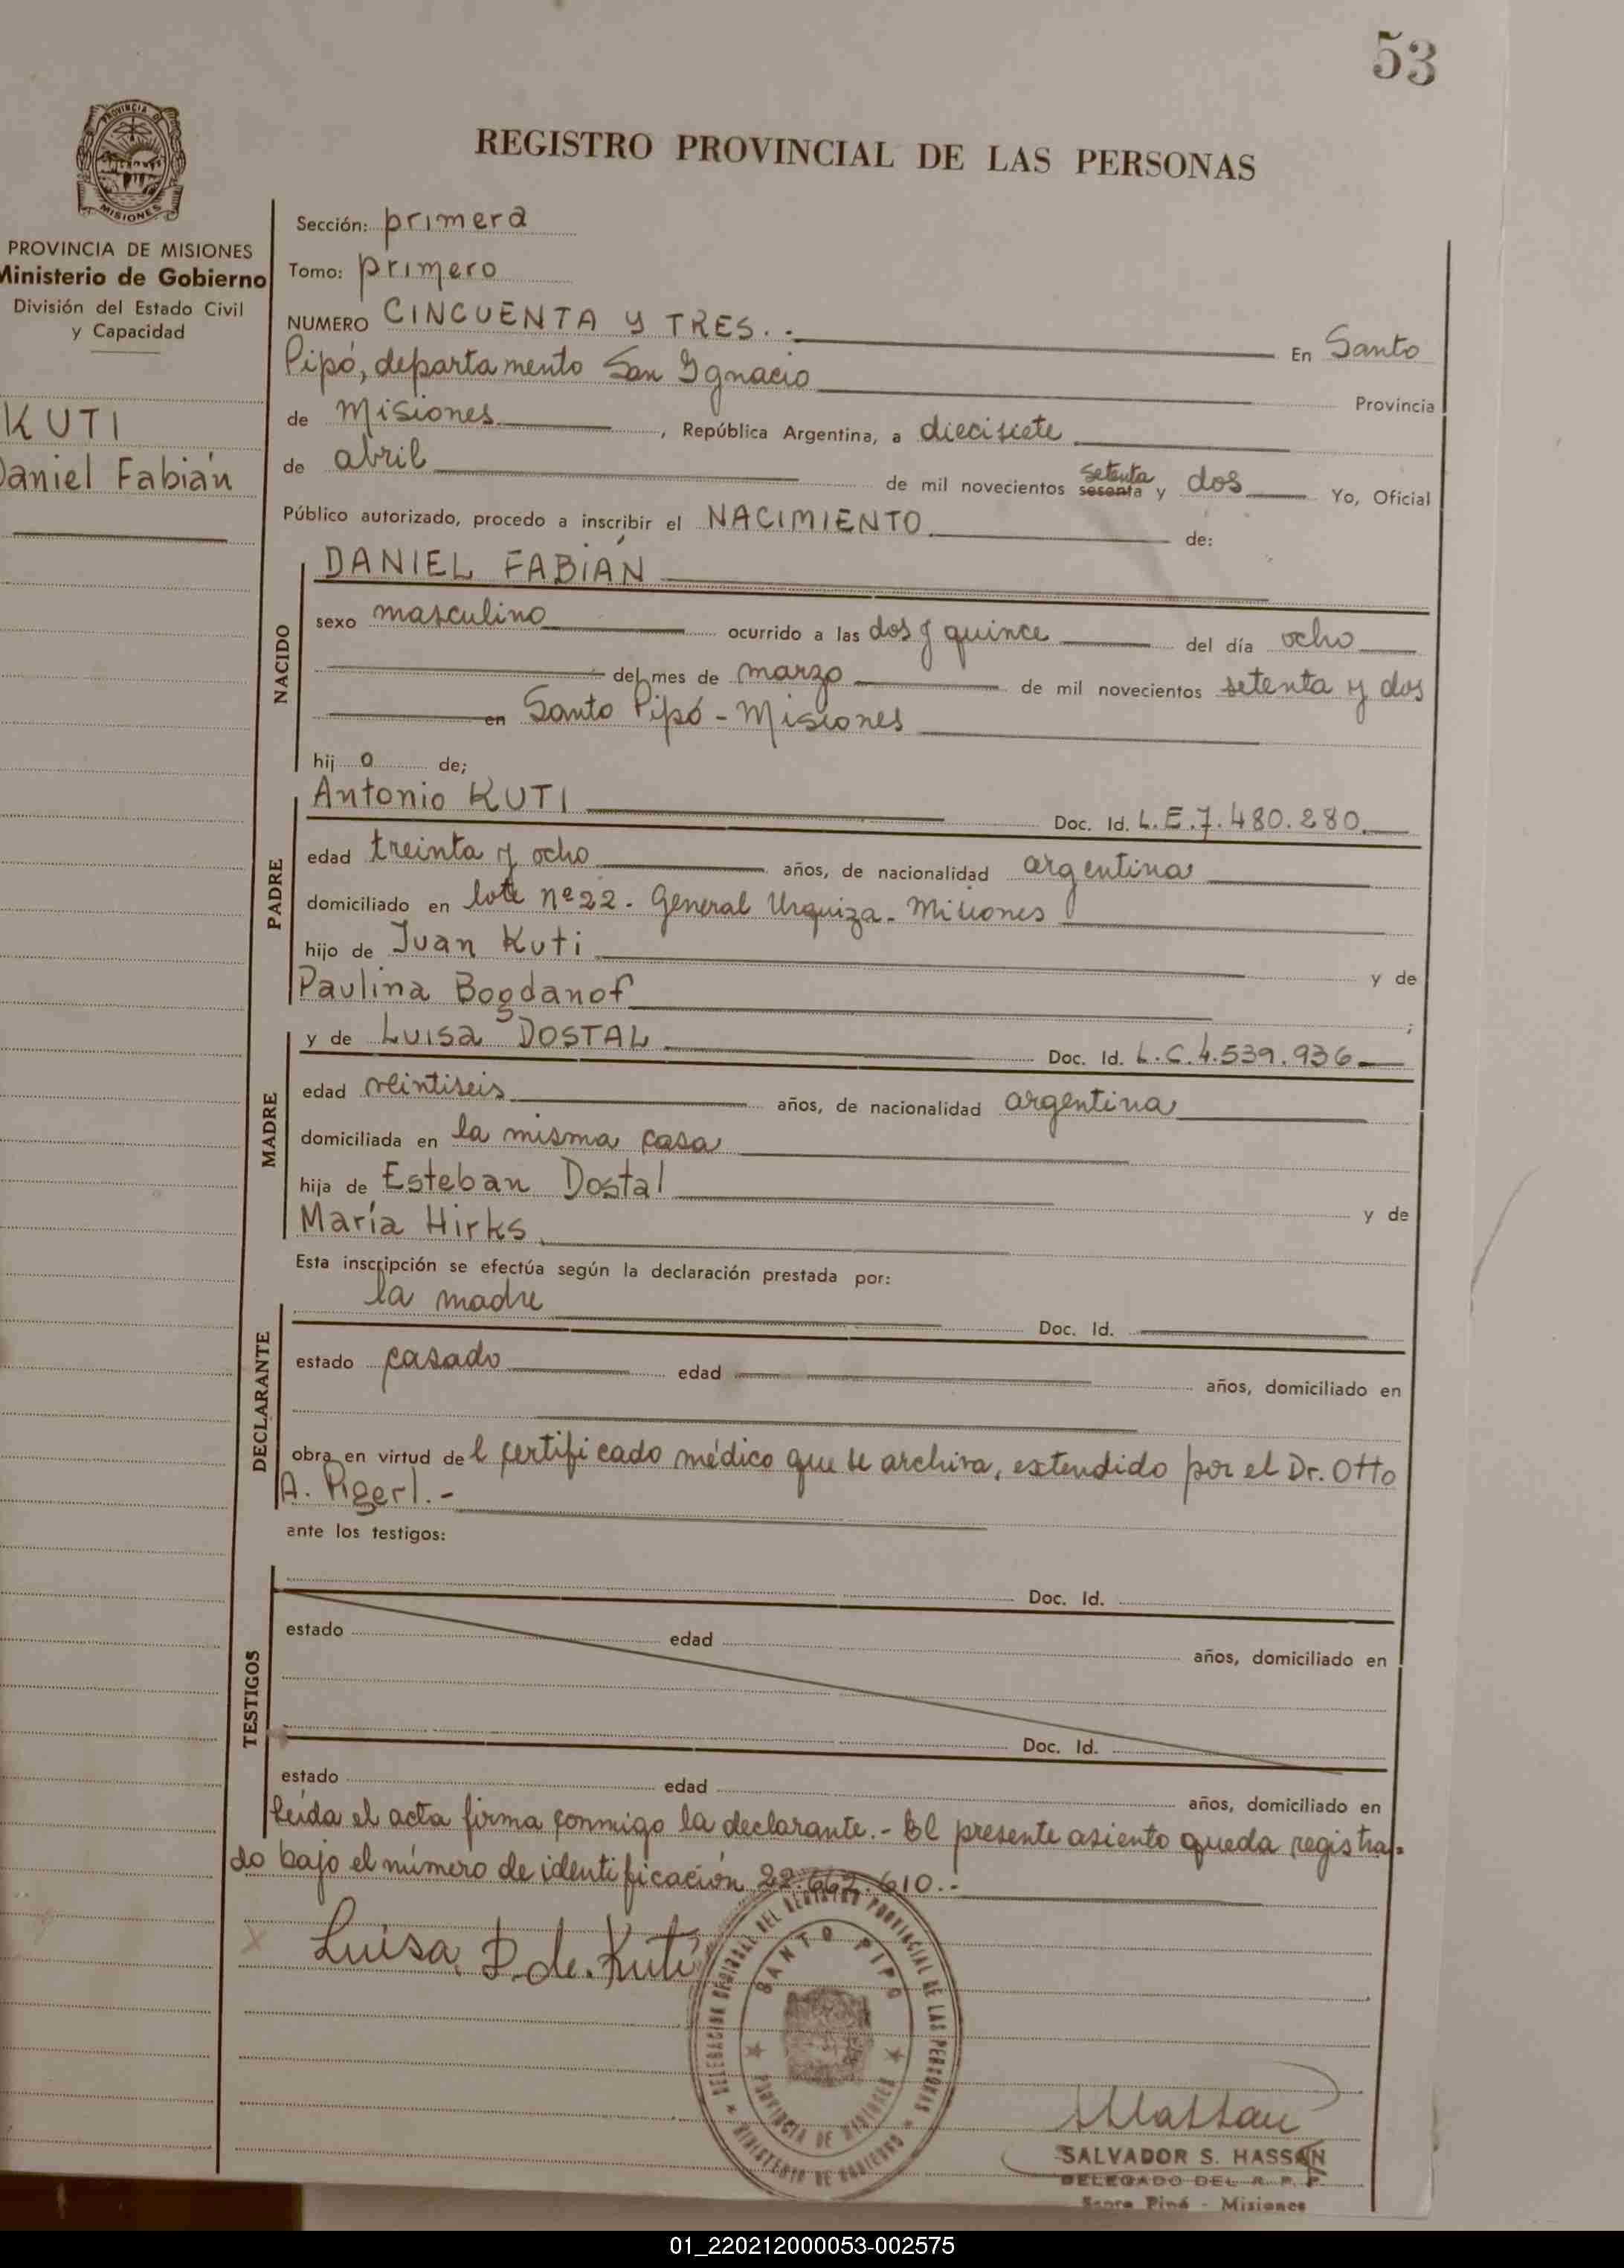 53
PROVINCIA DE
MISIONES
REGISTRO PROVINCIAL DE LAS PERSONAS
PROVINCIA DE MISIONES
Ministerio de Gobierno
División del Estado Civil
y Capacidad
KUTI
Daniel Fabián
Sección: primera
Tomo: primero
NUMERO CINCUENTA y TRES.- En Santo
Pipó, departamento San Ignacio Provincia
de Misiones, República Argentina, a diecisiete
de abril de mil novecientos sesenta setenta y dos Yo, Oficial
Público autorizado, procedo a inscribir el NACIMIENTO de:
NACIDO
DANIEL FABIÁN
sexo masculino ocurrido a las dos y quince del día ocho
del mes de marzo de mil novecientos setenta y dos
en Santo Pipó - Misiones
hij o de;
PADRE
Antonio KUTI Doc. Id. L.E.7.480.280
edad treinta y ocho años, de nacionalidad argentina
domiciliado en lote nº 22. General Urquiza - Misiones
hijo de Juan Kuti y de
Paulina Bogdanof ;
MADRE
y de Luisa DOSTAL Doc. Id. L.C.4.539.936
edad veintiseis años, de nacionalidad argentina
domiciliada en la misma casa
hija de Esteban Dostal y de
María Hirks
Esta inscripción se efectúa según la declaración prestada por:
DECLARANTE
la madre Doc. Id.
estado casado edad años, domiciliado en
obra en virtud de l certificado médico que se archiva, extendido por el Dr. Otto
A. Rigerl.-
ante los testigos:
TESTIGOS
Doc. Id.
estado edad años, domiciliado en
Doc. Id.
estado edad años, domiciliado en
leída el acta firma conmigo la declarante.- El presente asiento queda registra-
do bajo el número de identificación 22.667.610.-
Luisa D. de Kuti
DELEGACION REGIONAL DEL REGISTRO PROVINCIAL DE LAS PERSONAS
SANTO PIPO
PROVINCIA DE MISIONES
MINISTERIO DE GOBIERNO
SALVADOR S. HASSAN
DELEGADO DEL R. P. P.
Santo Pipó - Misiones
01_220212000053-002575